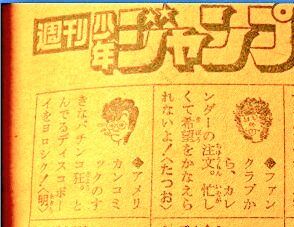 週刊少年ジャンプ
ファン
クラブか
ら、カレ
ンダーの注文。忙し
くて希望をかなえら
れないよ!〈たつお〉
アメリ
カンコミ
ックのす
きなパチンコ狂。と
んでるディスコボー
イをヨロシク!〈明〉